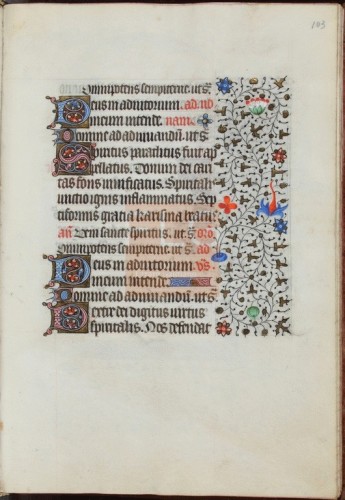 103
Omnipotens sempiterne. ut sͣ.
Deus in adiutorium. ad no
meum intende. nam.
Domine ad adiuuandū. ut sͣ.
Spiritus paraclitus fuit ap
pellatus. Donum dei cari
tas fons uiuificatus. Spiritalis
unctio ignis inflammatus. Sep
tiformis gracia karisma
añ. Veni sancte spiritus. ut sͣ. oro
Omnipotens sempiterne ut sͣ. ad
Deus in adiutorium. vs
meum intende.
Domine ad adiuuandū. ut sͣ.
Dextre dei digitus virtus
spiritalis. Nos defendat